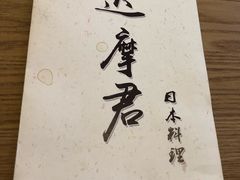 达摩君
日本料理